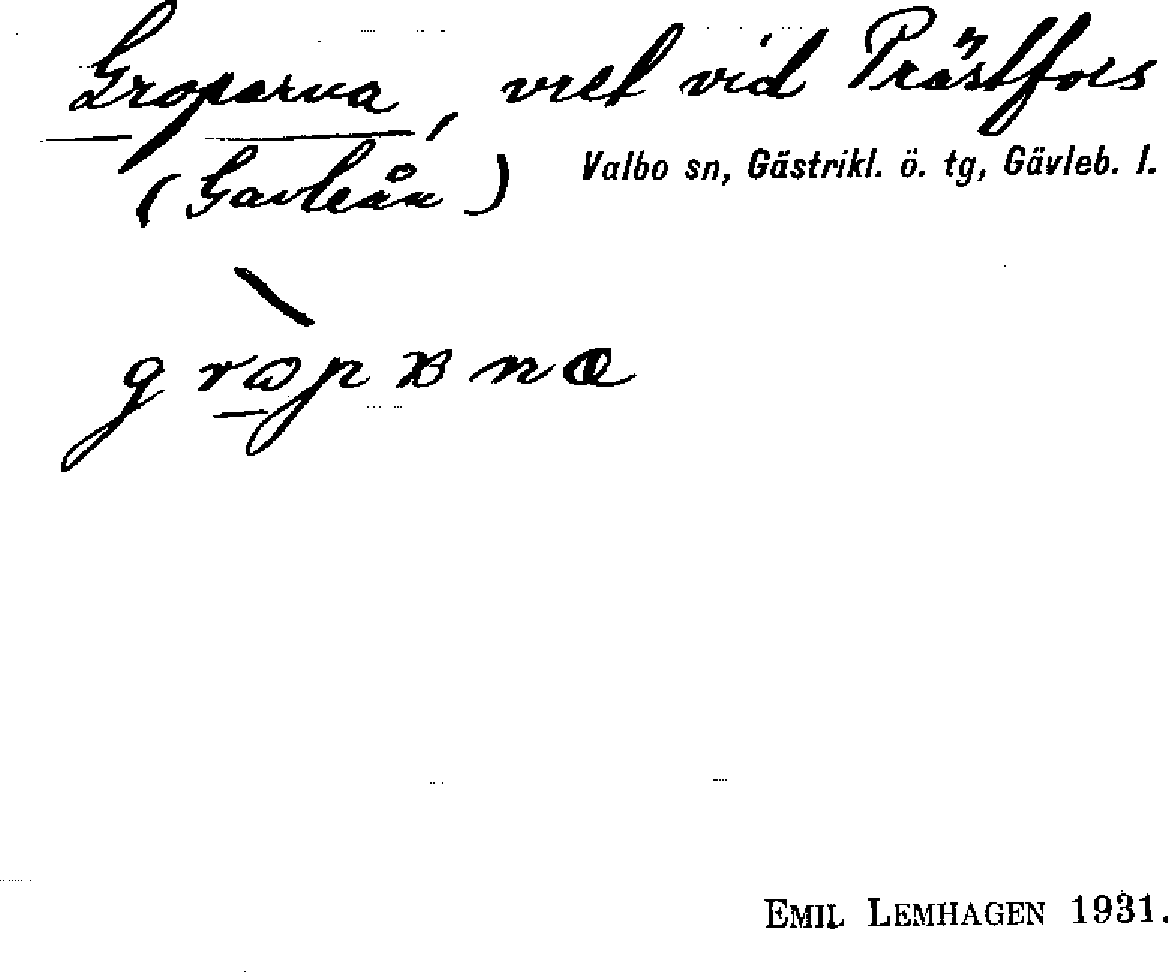 Groparna, vret vid Prästfors
(Gavleån)
Valbo sn, Gästrikl. ö. tg, Gävleb. l.
EMIL LEMHAGEN 1931.